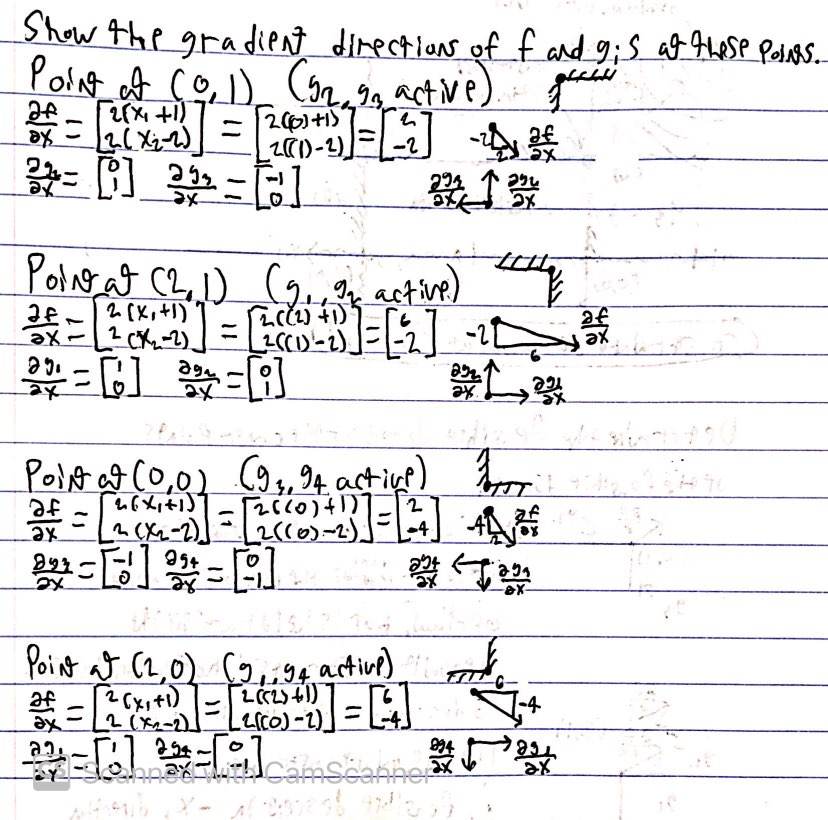 Show the gradient directions of f and gi's at these points.
Point at (0,1) (g2, g3 active)
∂f/∂x = [2(x1+1) 2(x2-2)] = [2((0)+1) 2((1)-2)] = [2 -2] -2 2 ∂f/∂x
∂g2/∂x = [0 1] ∂g3/∂x = [-1 0] ∂g3/∂x ∂g2/∂x
Point at (2,1) (g1, g2 active)
∂f/∂x = [2(x1+1) 2(x2-2)] = [2((2)+1) 2((1)-2)] = [6 -2] -2 6 ∂f/∂x
∂g1/∂x = [1 0] ∂g2/∂x = [0 1] ∂g2/∂x ∂g1/∂x
Point at (0,0) (g3, g4 active)
∂f/∂x = [2(x1+1) 2(x2-2)] = [2((0)+1) 2((0)-2)] = [2 -4] -4 2 ∂f/∂x
∂g3/∂x = [-1 0] ∂g4/∂x = [0 -1] ∂g4/∂x ∂g3/∂x
Point at (2,0) (g1, g4 active)
∂f/∂x = [2(x1+1) 2(x2-2)] = [2((2)+1) 2((0)-2)] = [6 -4] 6 -4
∂g1/∂x = [1 0] ∂g4/∂x = [0 -1] ∂g4/∂x ∂g1/∂x
CS Scanned with CamScanner